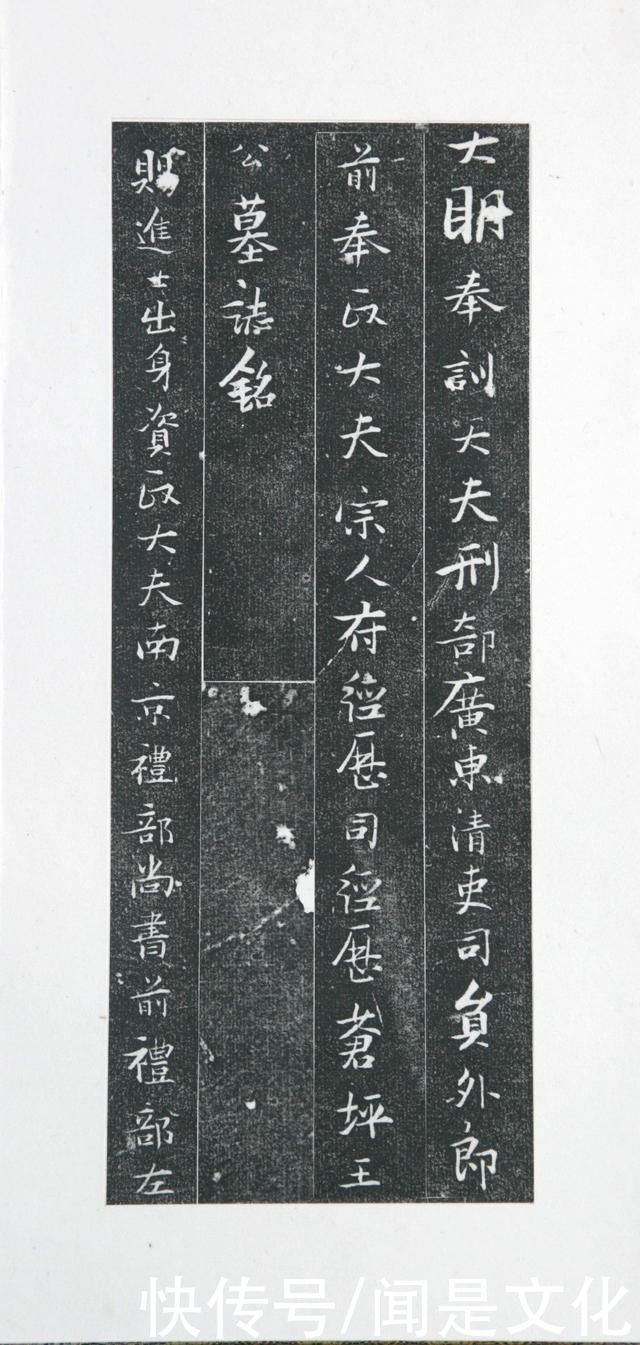 大明奉訓大夫刑部廣東清吏司員外郎
前奉政大夫宗人府經歷司經歷蒼坪王
公墓誌銘
賜進士出身資政大夫南京禮部尚書前禮部左
快传号/闻是文化